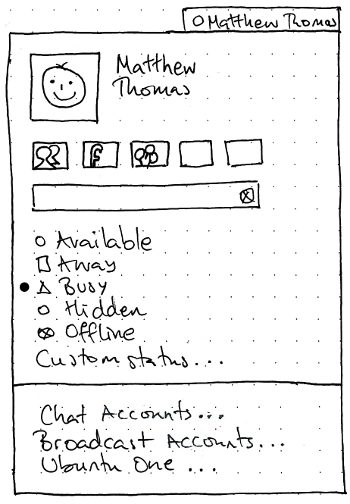 Matthew Thomas
Matthew
Thomas
f
Available
Away
Busy
Hidden
Offline
Custom status...
Chat Accounts...
Broadcast Accounts...
Ubuntu One ...